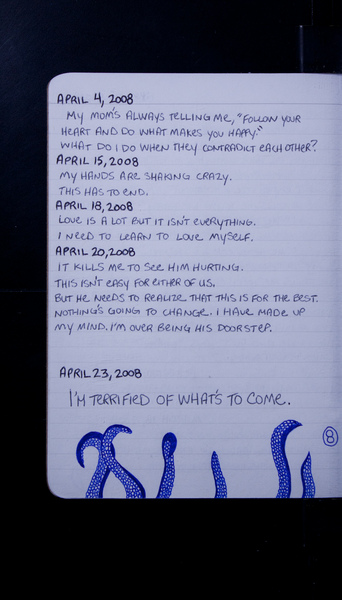 APRIL 4, 2008
MY MOM'S ALWAYS TELLING ME, "FOLLOW YOUR
HEART AND DO WHAT MAKES YOU HAPPY."
WHAT DO I DO WHEN THEY CONTRADICT EACH OTHER?
APRIL 15, 2008
MY HANDS ARE SHAKING CRAZY.
THIS HAS TO END.
APRIL 18, 2008
LOVE IS A LOT BUT IT ISN'T EVERYTHING.
I NEED TO LEARN TO LOVE MYSELF.
APRIL 20, 2008
IT KILLS ME TO SEE HIM HURTING.
THIS ISN'T EASY FOR EITHER OF US.
BUT HE NEEDS TO REALIZE THAT THIS IS FOR THE BEST.
NOTHING'S GOING TO CHANGE. I HAVE MADE UP
MY MIND. I'M OVER BEING HIS DOORSTEP.
APRIL 23, 2008
I'M TERRIFIED OF WHAT'S TO COME.
8